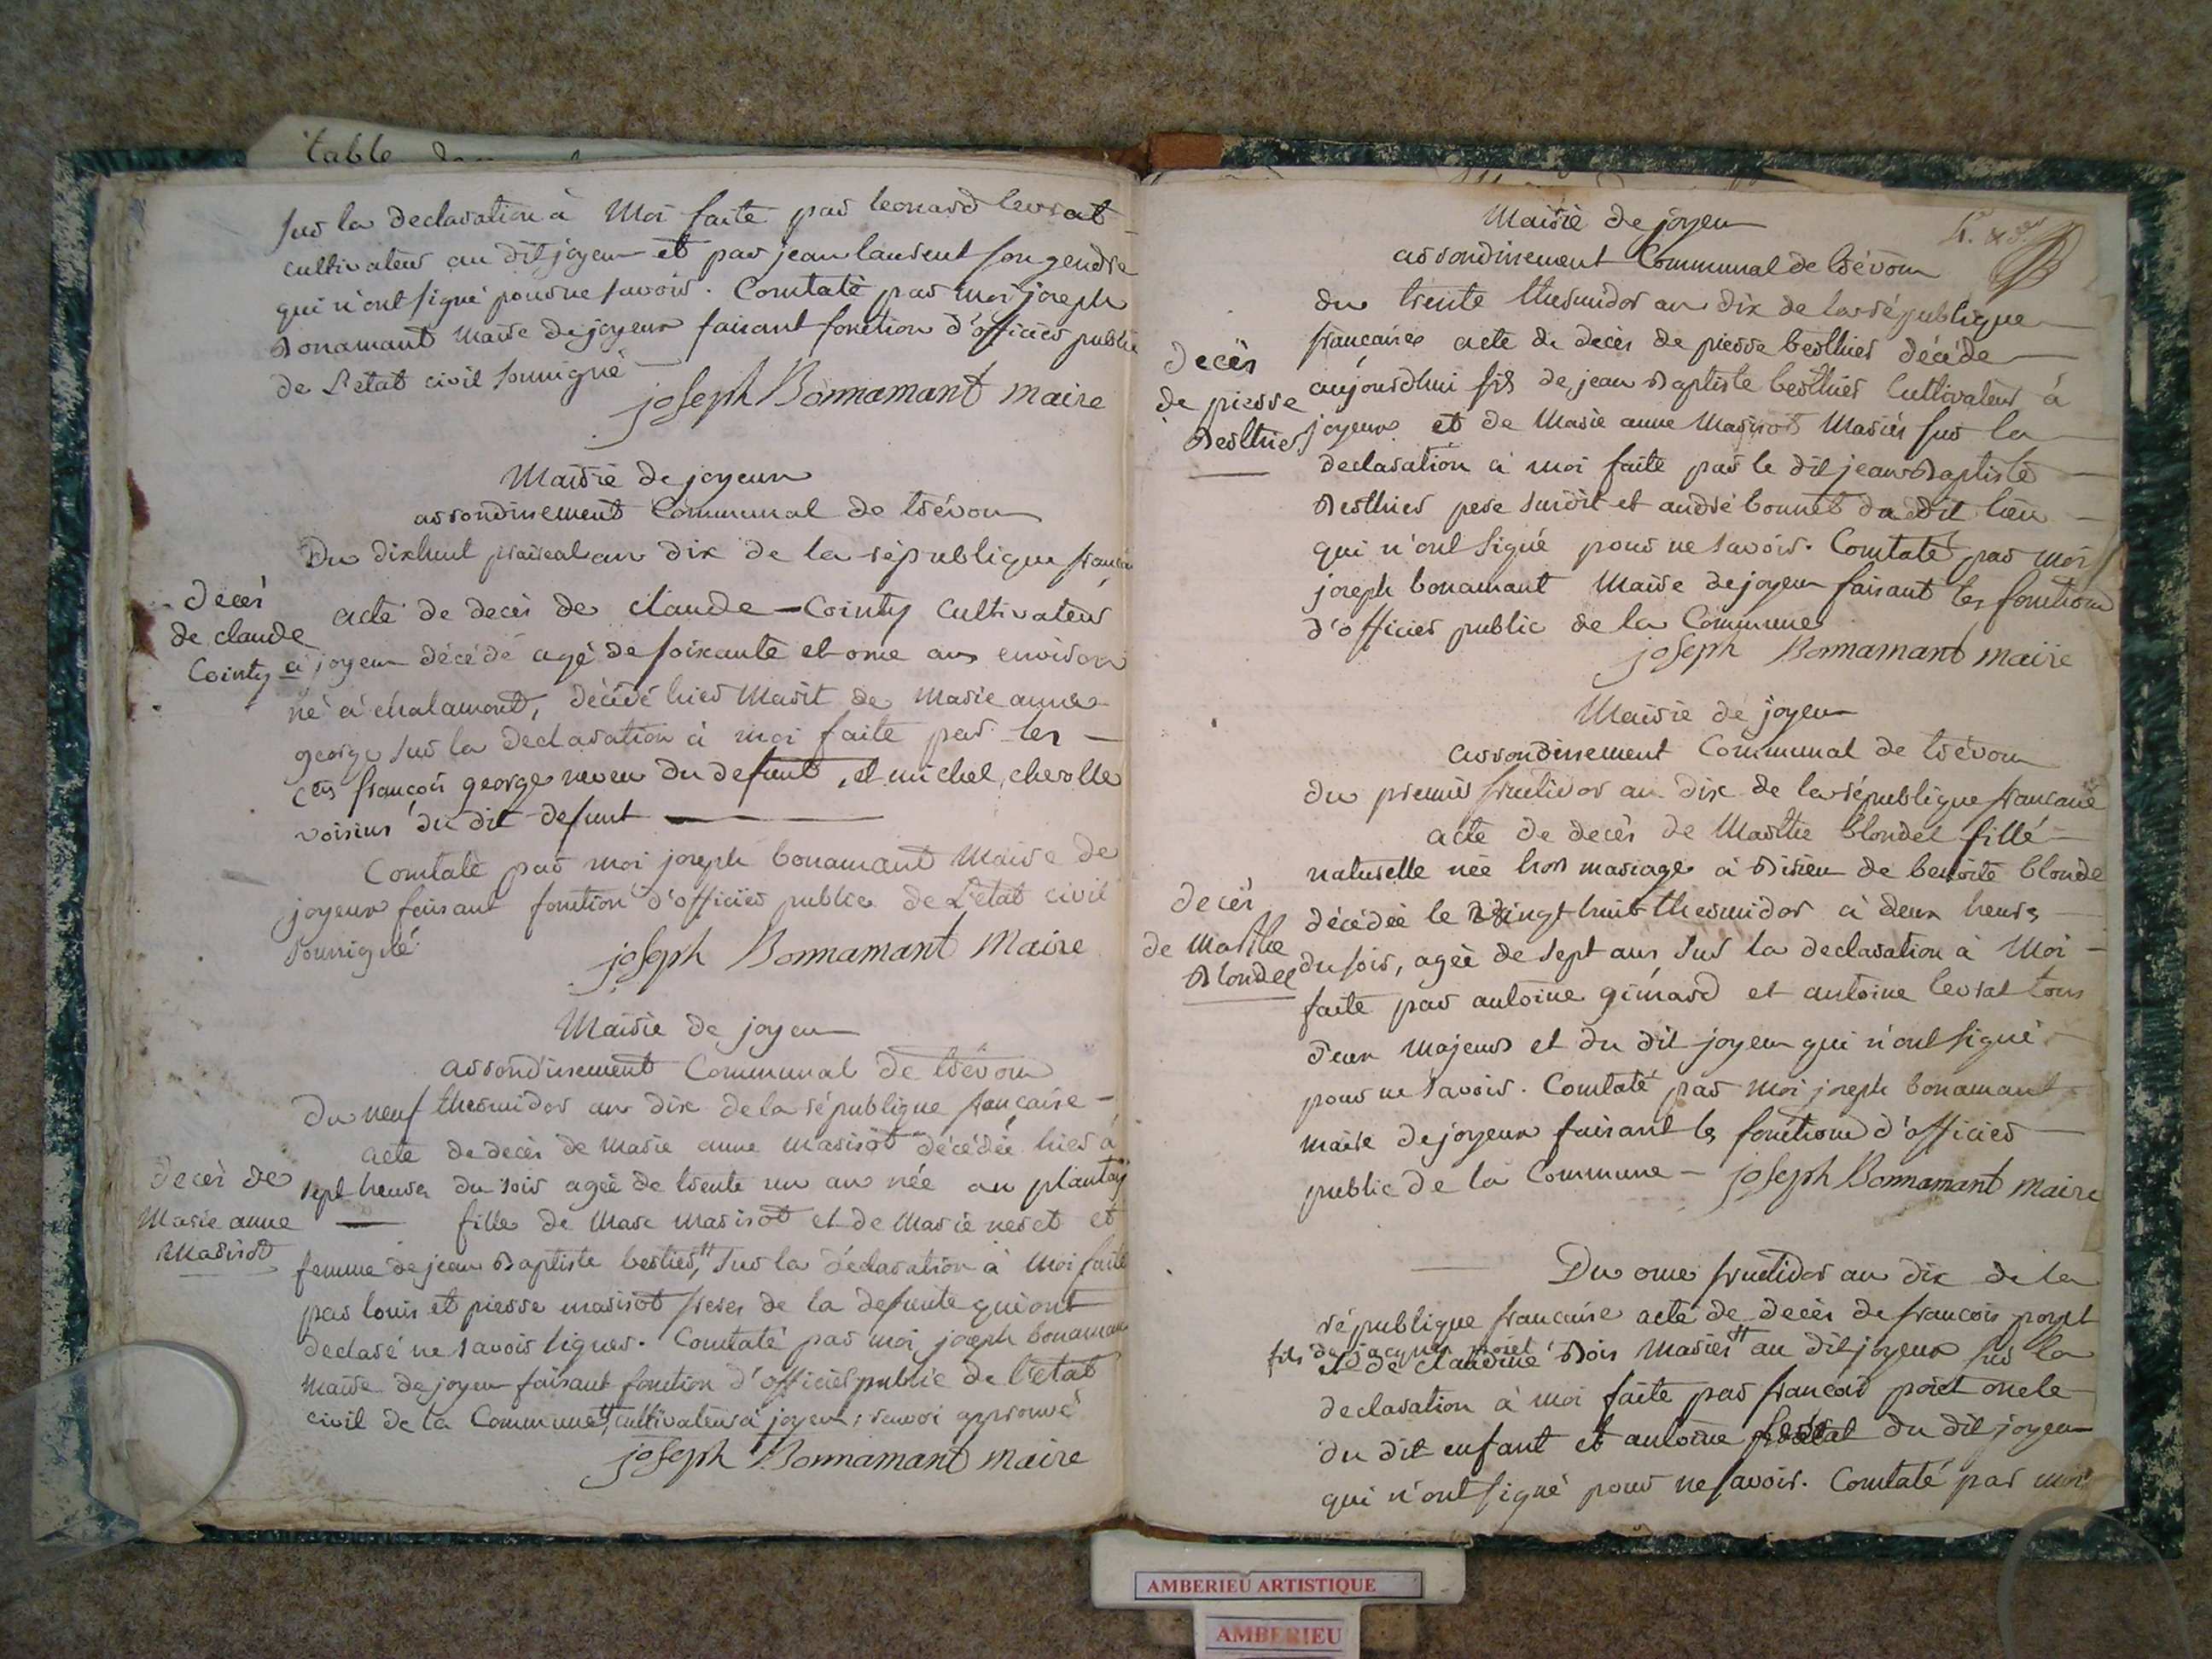 table
sur la declaration à Moi faite par leonard levrat
cultivateur au dit joyeux et par jean laurent son gendre
qui n'ont signé pour ne savoir. Contaté par moi joseph
Bonamant Maire de joyeux faisant fonction d'officier public
de L'etat civil soussigné
joseph Bonnamant maire
Mairie de joyeux
arrondissement Communal de trévoux
Du dixhuit prairéal an dix de la république françai
Décès
de claude
Cointy
acte de decès de claude Cointy cultivateur
à joyeux décédé agé de soixante et onze ans environ
né à chalamont, décédé hier Marit de marie anne
george sur la declaration à moi faite par les
cens françois george neveu du defunt, et michel cherolle
voisins du dit defunt
Contaté par moi joseph bonamant Maire de
joyeux faisant fonction d'officier public de L'etat civil
soussigné
joseph Bonnamant Maire
Mairie de joyeux
arrondissement Communal de trévoux
Du neuf thermidor an dix de la république française
Decès de
Marie anne
Marisot
acte de decès de marie anne marisot décédée hier à
sept heures du soir agée de trente un an née au plantay
fille de Marc marisot et de Marie neret et
femme de jean Baptiste bertier, sur la déclaration à Moi faite
par louis et pierre marisot freres de la defunte qui ont
declaré ne savoir signer. Contaté par moi joseph bonamant
Maire de joyeux faisant fonction d'officier public de l'etat
civil de la Commune, cultivateur à joyeux; renvoi approuvé
joseph Bonnamant maire
4.
Mairie de joyeux
arrondissement Communal de trévoux
du trente thermidor an dix de la république
Decès
de pierre
Berthier
française acte de decès de pierre berthier décéde
aujourdhui fils de jean Baptiste berthier Cultivateur à
joyeux et de Marie anne Marisot Mariés sur la
declaration à moi faite par le dit jean Baptiste
Berthier pere susdit et andré bonnet du dit lieu
qui n'ont signé pour ne savoir. Contaté par moi
joseph bonamant Maire de joyeux faisant les fonctions
d'officier public de la Commune
joseph Bonnamant maire
Mairie de joyeux
arrondissement Communal de trévoux
du premier fructidor an dix de la république française
acte de decès de Marthe blondel fille
naturelle née hors mariage à Birieu de benoite blonde
Decès
de Marthe
Blondel
décédée le vingt huit thermidor à deux heures
du soir, agée de sept ans sur la declaration à Moi
faite par antoine gimard et antoine levrat tous
deux Majeurs et du dit joyeux qui n'ont signé
pour ne savoir. Contaté par moi joseph bonamant
maire de joyeux faisant les fonctions d'officier
public de la Commune - joseph Bonnamant maire
Du onze fructidor an dix de la
république française acte de decès de francois poyet
fils de jacques poiet
et de claudine Bois Mariés au dit joyeux sur la
declaration à moi faite par francois poiet oncle
du dit enfant et antoine du dit joyeux
qui n'ont signé pour ne savoir. Contaté par moi
AMBERIEU ARTISTIQUE
AMBERIEU